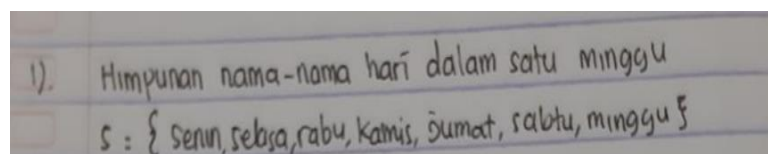 1). Himpunan nama-nama hari dalam satu minggu
S : { senin, selasa, rabu, kamis, Jumat, sabtu, minggu }